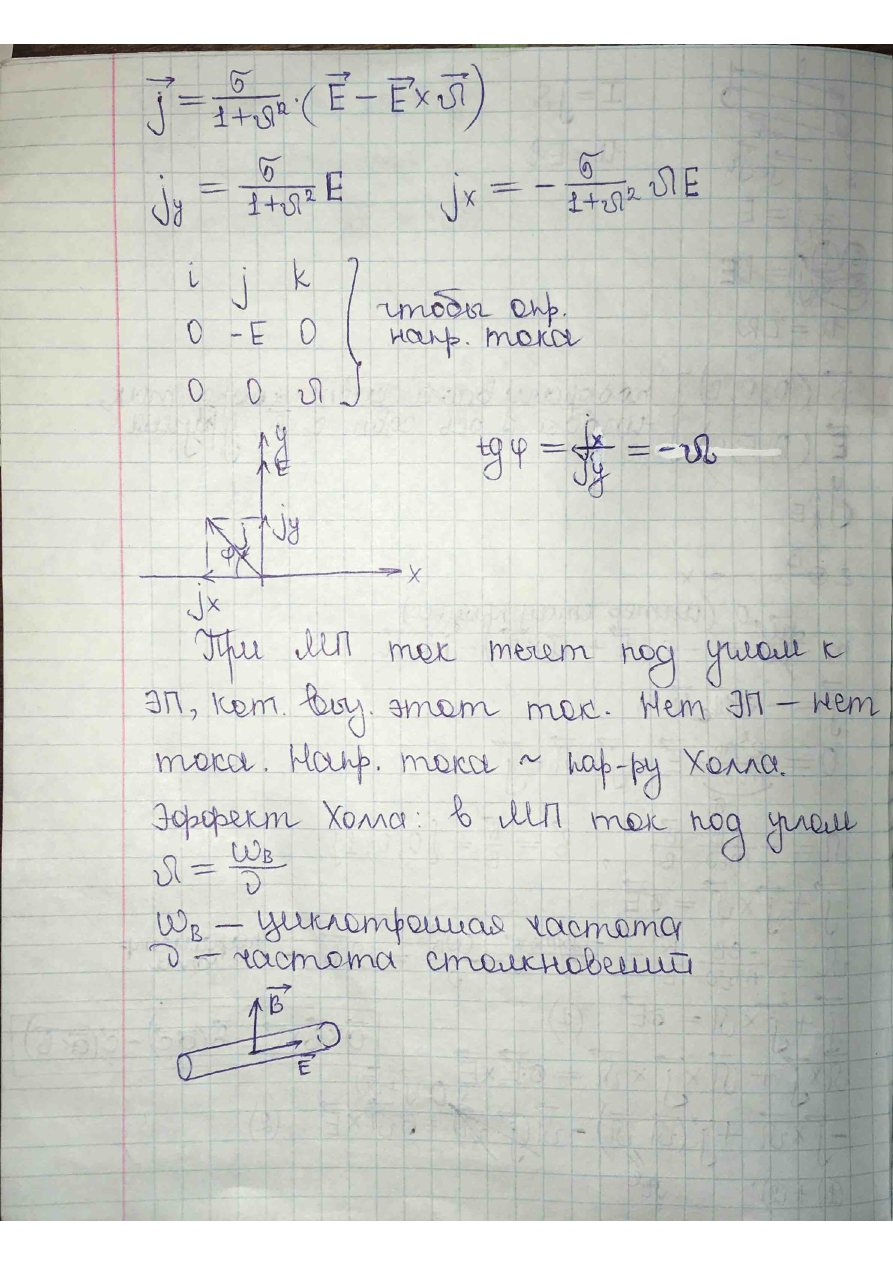 j⃗ = σ/(1+Ω²) · (E⃗ − E⃗ × Ω⃗)
jy = σ/(1+Ω²) E jx = − σ/(1+Ω²) ΩE
i j k
чтобы опр.
0 -E 0 напр. тока
0 0 Ω
y
E
tg φ = jx/jy = −Ω
jy
j
φ
x
jx
При МП ток течет под углом к
ЭП, кот. выз. этот ток. Нет ЭП – нет
тока. Напр. тока ~ пар-ру Холла.
Эффект Холла: в МП ток под углом
Ω = ωB/ν
ωB – циклотронная частота
ν – частота столкновений
B⃗
E⃗